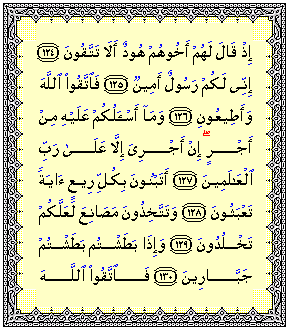 إِذۡ قَالَ لَهُمۡ أَخُوهُمۡ هُودٌ أَلَا تَتَّقُونَ ١٢٤
إِنِّى لَكُمۡ رَسُولٌ أَمِينٌ ١٢٥ فَٱتَّقُواْ ٱللَّهَ
وَأَطِيعُونِ ١٢٦ وَمَآ أَسۡـَٔلُكُمۡ عَلَيۡهِ مِنۡ
أَجۡرٍۖ إِنۡ أَجۡرِىَ إِلَّا عَلَىٰ رَبِّ
ٱلۡعَـٰلَمِينَ ١٢٧ أَتَبۡنُونَ بِكُلِّ رِيعٍ ءَايَةً
تَعۡبَثُونَ ١٢٨ وَتَتَّخِذُونَ مَصَانِعَ لَعَلَّكُمۡ
تَخۡلُدُونَ ١٢٩ وَإِذَا بَطَشۡتُم بَطَشۡتُمۡ
جَبَّارِينَ ١٣٠ فَٱتَّقُواْ ٱللَّهَ